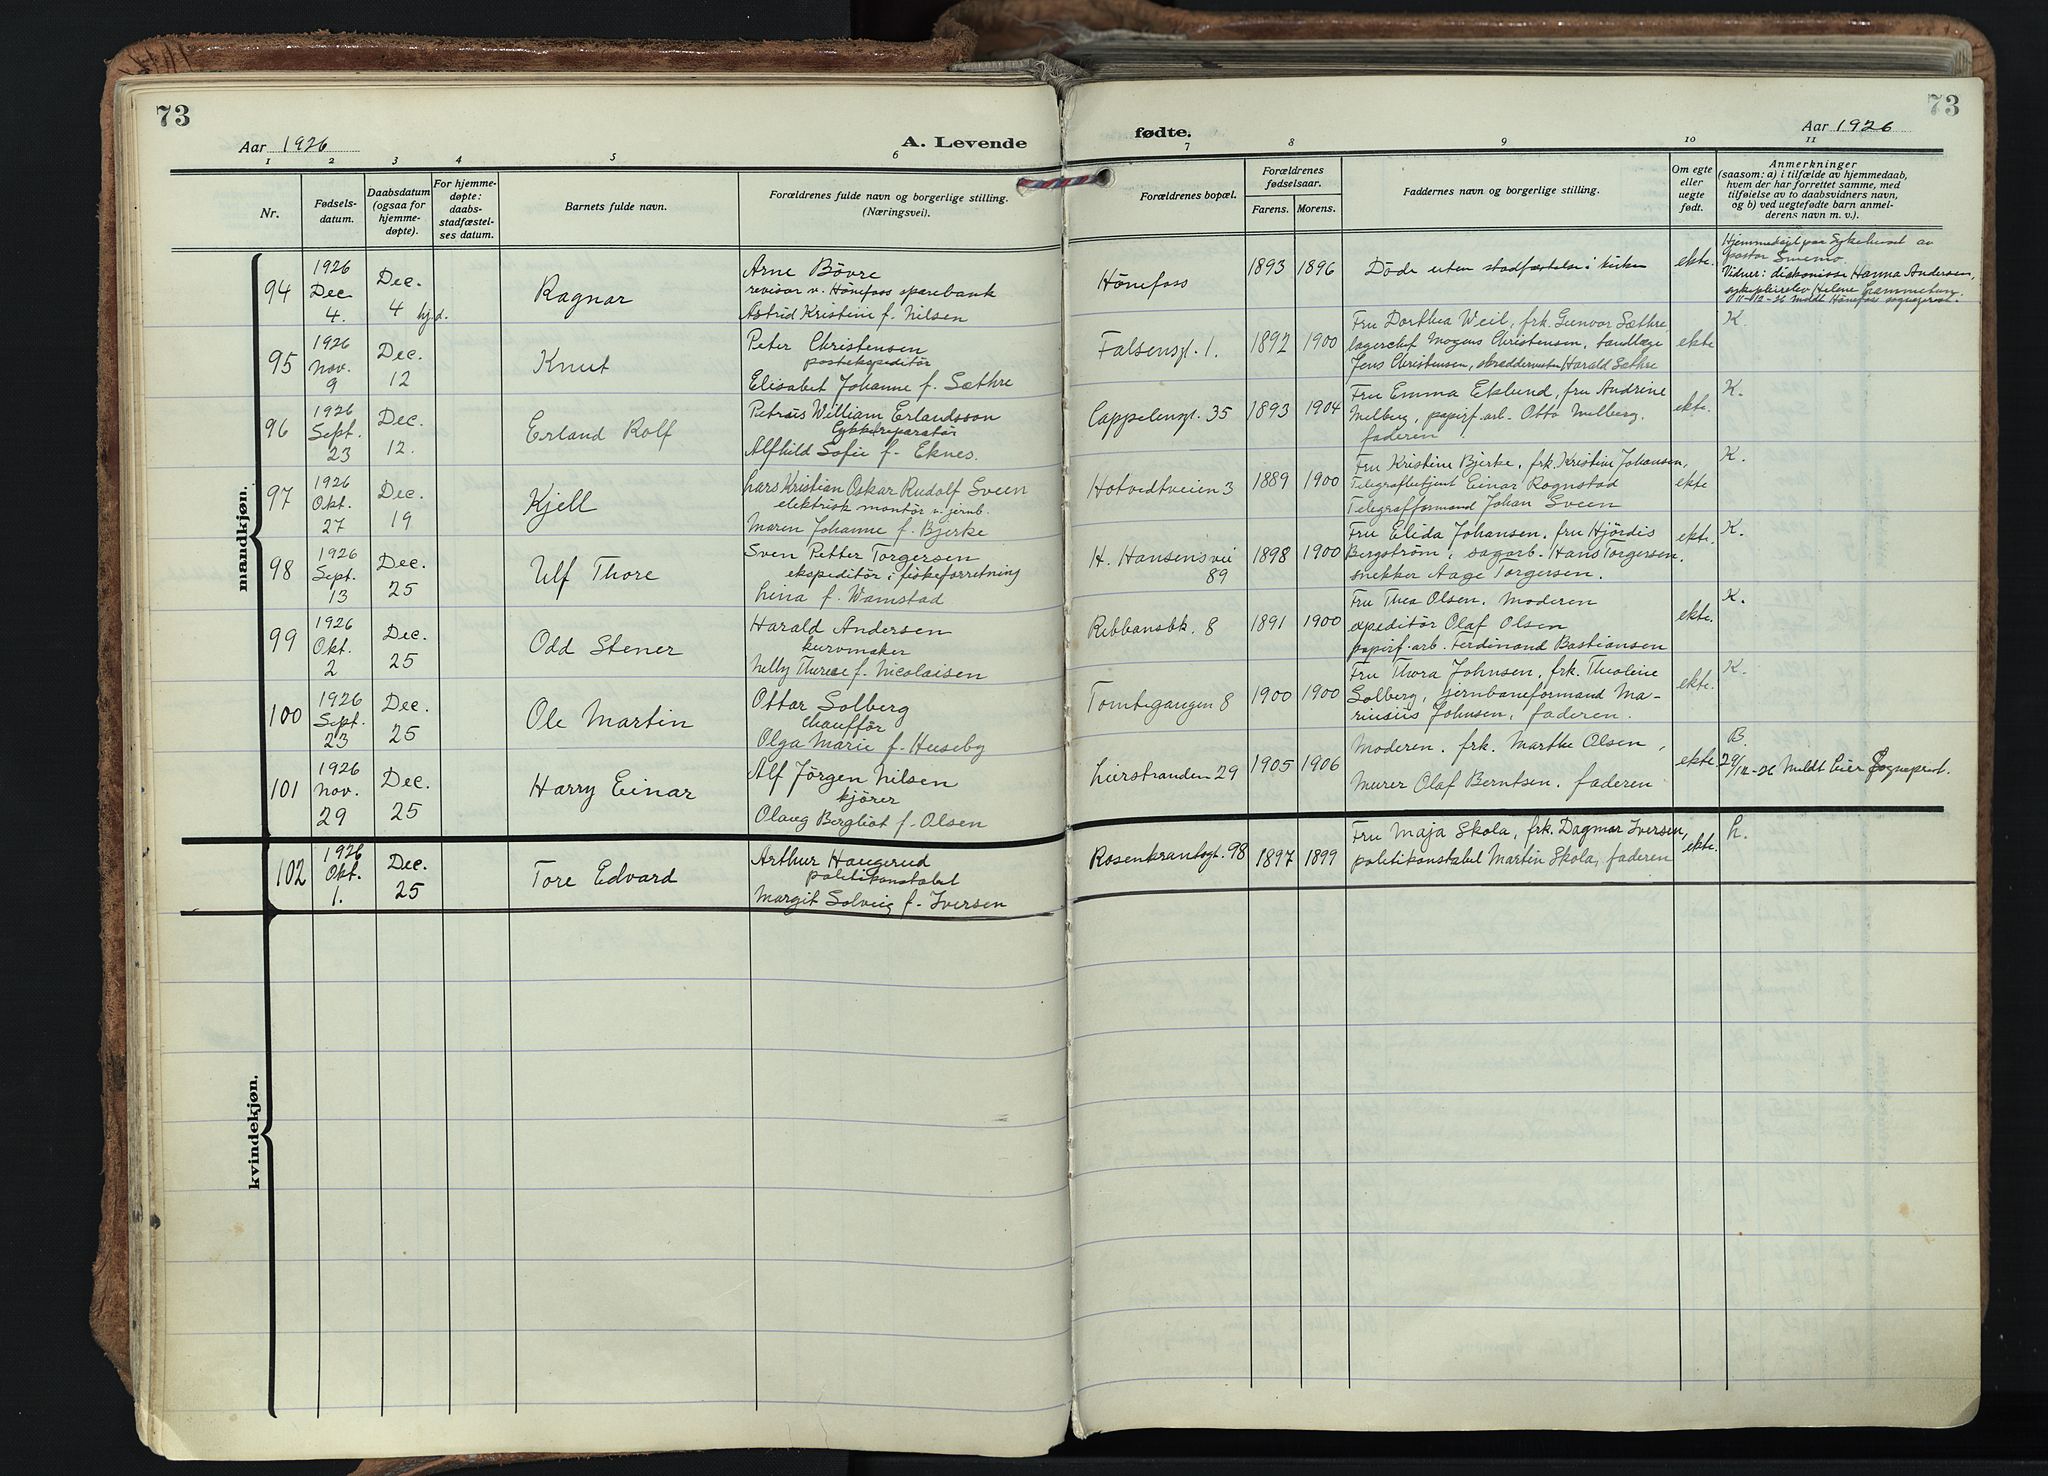 73
Aar 1926
A. Levende
fødte.
Aar 1926
73
1 2 3 4 5 6 7 8 9 10 11
Nr.
Fødsels-
datum.
Daabsdatum
(ogsaa for
hjemme-
døpte).
For hjemme-
døpte:
daabs-
stadfæstel-
ses datum.
Barnets fulde navn.
Forældrenes fulde navn og borgerlige stilling.
(Næringsvei).
Forældrenes bopæl.
Forældrenes
fødselsaar.
Farens. Morens.
Faddernes navn og borgerlige stilling.
Om egte
eller
uegte
født.
Anmerkninger
(saasom: a) i tilfælde av hjemmedaab,
hvem der har forrettet samme, med
tilføielse av to daabsvidners navn,
og b) ved uegtefødte barn anmel-
derens navn m. v.).
mandkjøn.
94
1926
Dec
4.
Dec.
4 hj.d.
Ragnar
Arne Bövre
revisor v. Hönefoss sparebank
Astrid Kristine f. Nilsen
Hönefoss
1893 1896
Döde uten stadfæstelse i kirken
ekte.
Hjemmedöpt paa Sykehuset av
pastor
Vidner: diakonisse Hanna Andersen,
sykepleirelev Helene
11-12-26 meldt Hönefoss sogneprest.
95
1926
Nov.
9
Dec.
12
Knut
Peter Christensen
postekspeditör
Elisabet Johanne f. Sæthre
Falsensgt. 1.
1892 1900
Fru Dorthea Weil, frk. Gunvor Sæthre,
lagerchef Mogens Christensen, tandlæge
Jens Christensen, skræddermester Harald Sæthre
ekte
K.
96
1926
Sept.
23
Dec.
12.
Erland Rolf
Petrus William Erlandsson
Cykkelreparatör
Alfhild Sofie f. Eknes.
Cappelensgt. 35
1893 1904
Fru Emma Eklund, fru Andrine
Melberg, papirf. arb. Otto Melberg.
faderen
ekte.
K.
97
1926
Okt.
27
Dec.
19
Kjell
Lars Kristian Oskar Rudolf Sveen
elektrisk montör v. jernb.
Maren Johanne f. Bjerke
Hotvedtveien 3
1889 1900
Fru Kristine Bjerke, frk. Kristine Johansen,
Telegrafbetjent Einar Rognstad
Telegrafformand Johan Sveen
ekte
K.
98
1926
Sept.
13
Dec.
25
Ulf Thore
Sven Petter Torgersen
ekspeditör i fiskeforretning
Lina f. Wamstad
H. Hansensvei
89
1898 1900
Fru Elida Johansen, fru Hjördis
Bergström, sagarb. Hans Torgersen,
snekker Aage Torgersen.
ekte.
K.
99
1926
Okt.
2
Dec.
25
Odd Stener
Harald Andersen
kurvmaker
Nelly Therese f. Nicolaisen
Ribbansbk. 8
1891 1900
Fru Thea Olsen, Moderen
expeditör Olaf Olsen
papirf. arb. Ferdinand Bastiansen
ekte.
K.
100
1926
Sept.
23
Dec.
25
Ole Martin
Ottar Solberg
Chafför
Olga Marie f. Huseby
Tomtegangen 8
1900 1900
Fru Thora Johnsen, frk. Theoline
Solberg, jernbaneformand Ma-
rinsius Johnsen, faderen.
ekte.
K.
101
1926
Nov.
29
Dec.
25
Harry Einar
Alf Jörgen Nilsen
kjörer
Olaug Bergliot f. Olsen
Lierstranden 29
1905 1906
Moderen. frk. Marthe Olsen,
Murer Olaf Berntsen. faderen
ekte
B.
29/12-26 Meldt Lier Sogneprest.
102
1926
Okt.
1.
Dec.
25
Tore Edvard
Arthur Haugerud
politikonstabel
Margit Solveig f. Iversen
Rosenkrantzgt. 98
1897 1899
Fru Maja Skola, frk. Dagmar Iversen,
politikonstabel Martin Skola, faderen
ekte.
L.
kvindekjøn.